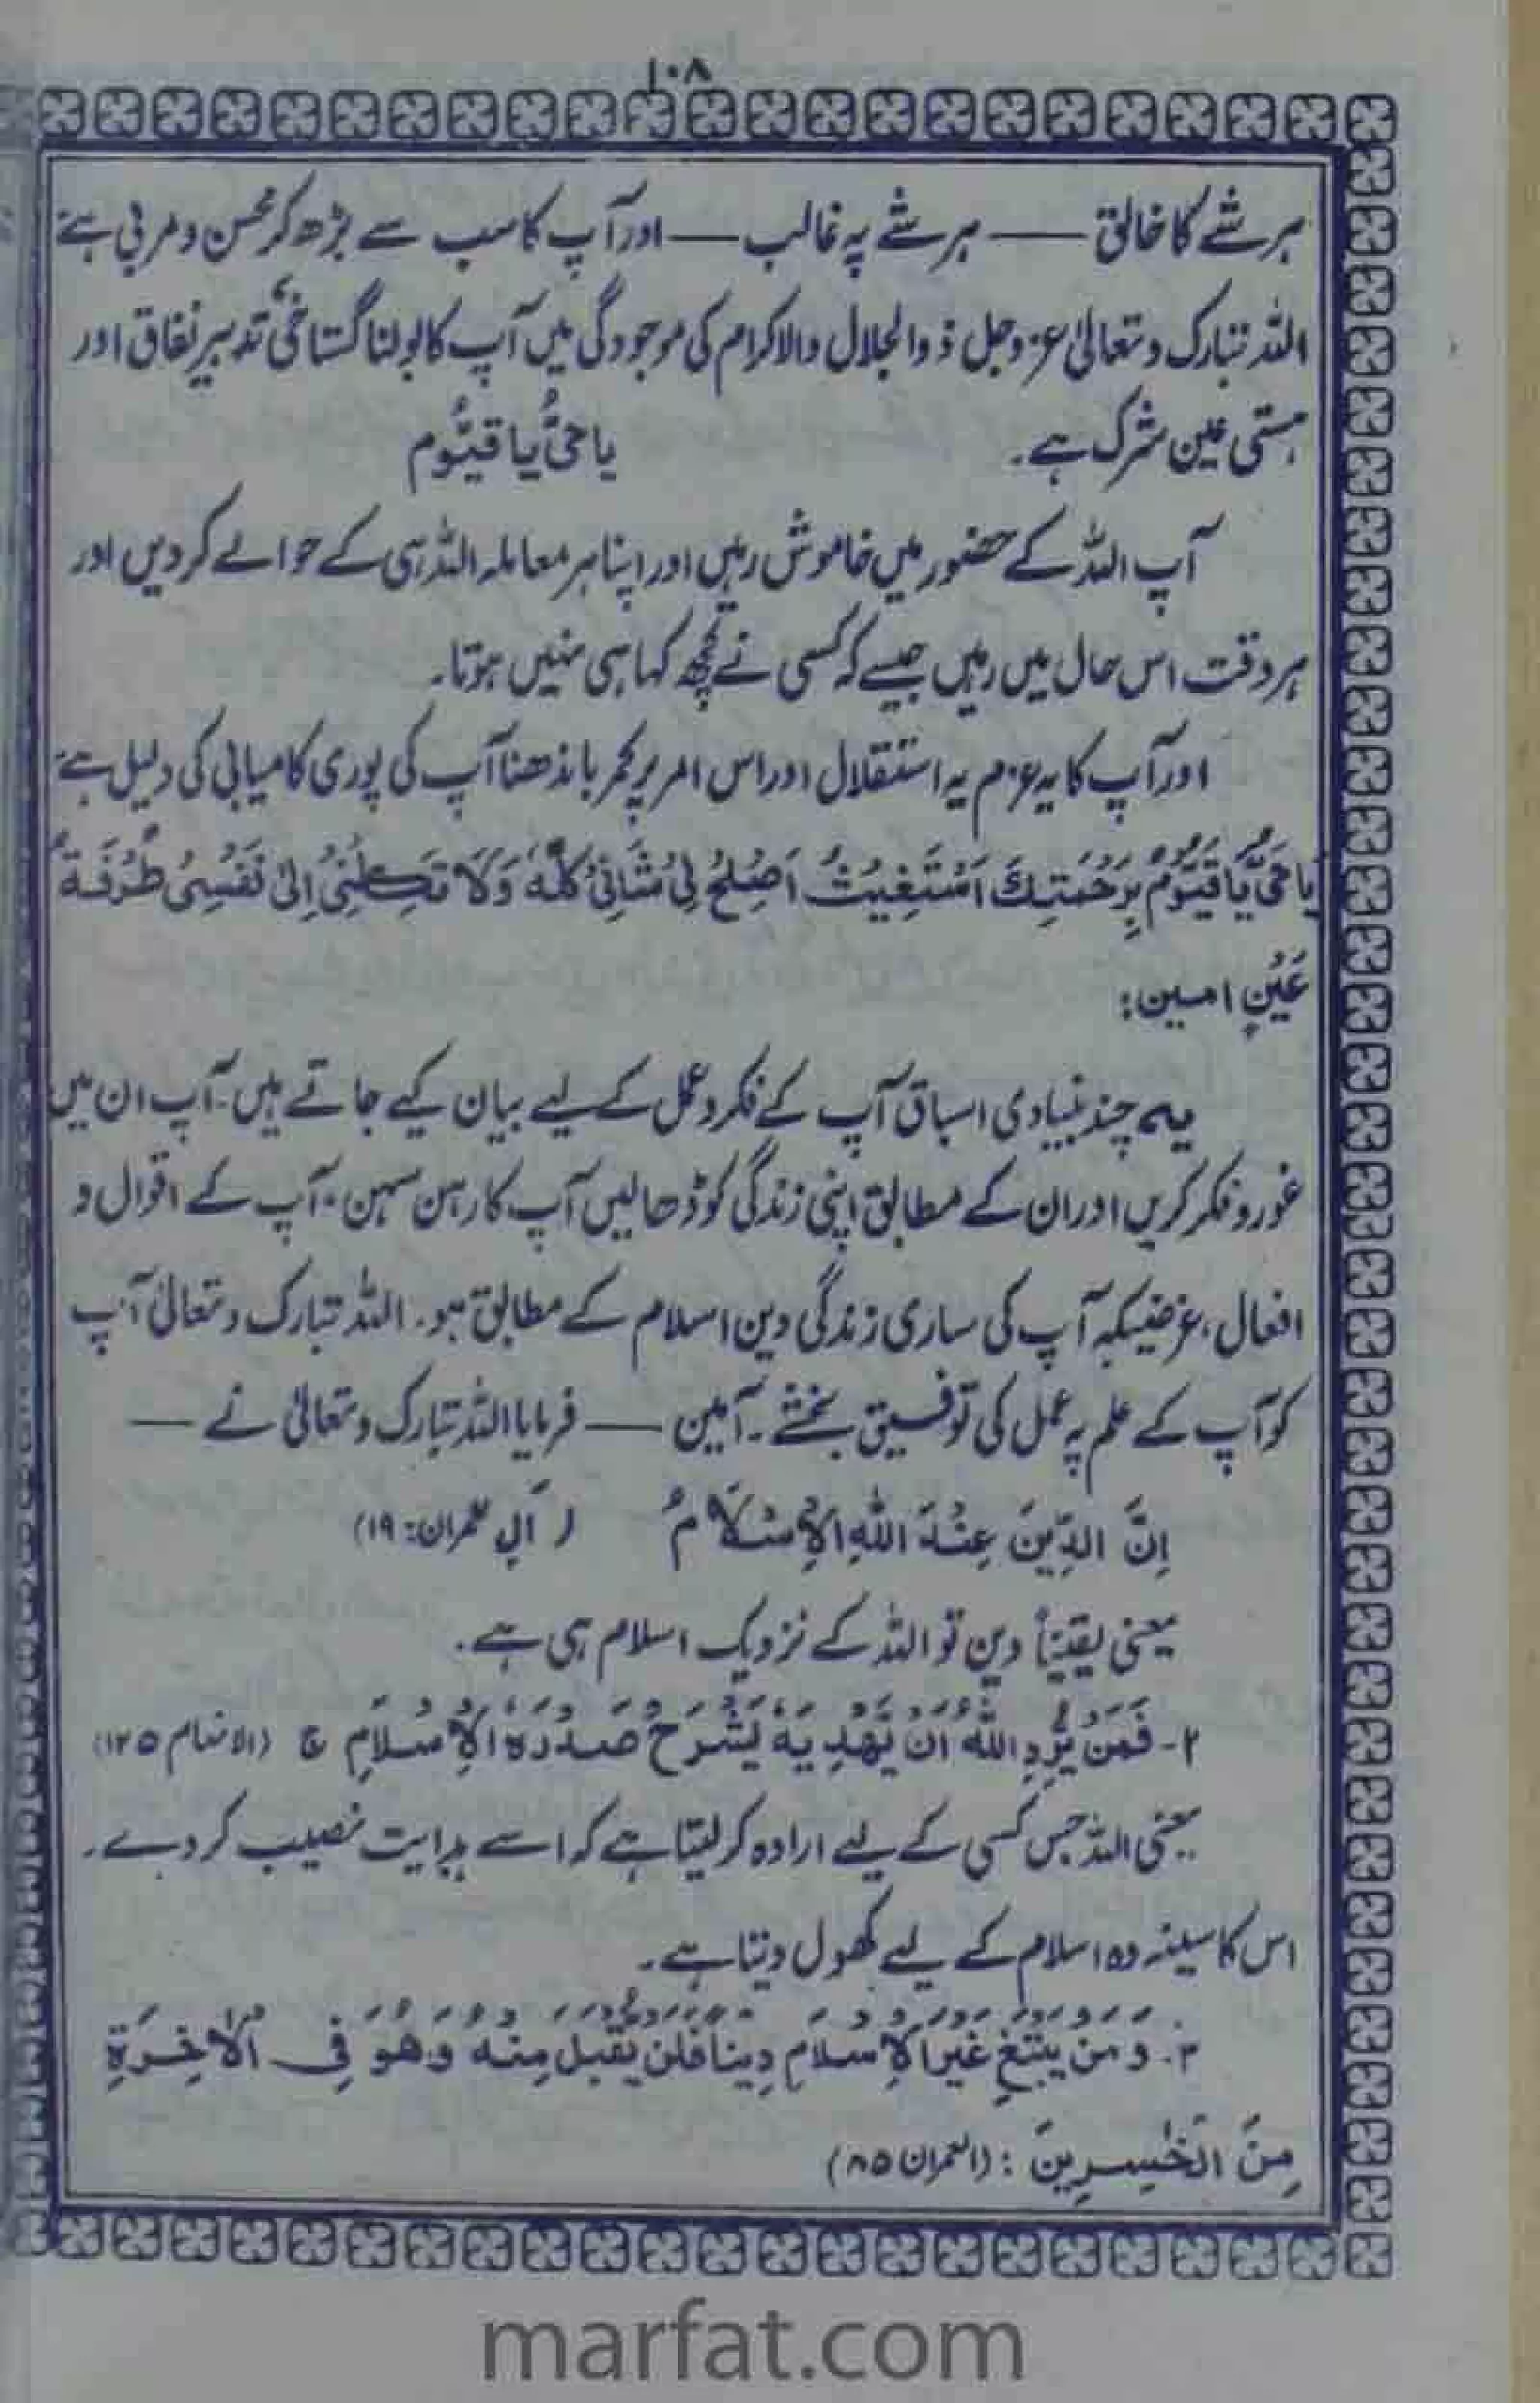 ۱۰۸
ہر شے کا خالق — ہر شے پہ غالب — اور آپ کا سب سے بڑھ کر محسن و مربی ہے
اللہ تبارک و تعالیٰ عز وجل ذوالجلال والاکرام کی موجودگی میں آپ کا بولنا گستاخی، تدبیر نفاق اور
ہستی عین شرک ہے۔ یا حیُّ یا قیُّوم
آپ اللہ کے حضور میں خاموش رہیں اور اپنا ہر معاملہ اللہ ہی کے حوالے کر دیں اور
ہر وقت اس حال میں رہیں جیسے کہ کسی نے کچھ کہا ہی نہیں ہوتا۔
اور آپ کا یہ عزم یہ استقلال اور اس امر پر کمر باندھنا آپ کی پوری کامیابی کی دلیل ہے
يَا حَيُّ يَا قَيُّوْمُ بِرَحْمَتِكَ اَسْتَغِيْثُ اَصْلِحْ لِىْ شَانِىْ كُلَّهٗ وَلَا تَكِلْنِىْ اِلٰى نَفْسِىْ طَرْفَةَ
عَيْنٍ امين:
یہ چند بنیادی اسباق آپ کے فکر و عمل کے لیے بیان کیے جاتے ہیں۔ آپ ان میں
غور و فکر کریں اور ان کے مطابق اپنی زندگی کو ڈھالیں آپ کا رہن سہن، آپ کے اقوال و
افعال، غرضیکہ آپ کی ساری زندگی دین اسلام کے مطابق ہو۔ اللہ تبارک و تعالیٰ آپ
کو آپ کے علم پہ عمل کی توفیق بخشے۔ آمین — فرمایا اللہ تبارک و تعالیٰ نے —
اِنَّ الدِّيْنَ عِنْدَ اللّٰهِ الْاِسْلَامُ (آلِ عمران: ۱۹)
یعنی یقیناً دین تو اللہ کے نزدیک اسلام ہی ہے۔
۲- فَمَنْ يُّرِدِ اللّٰهُ اَنْ يَّهْدِيَهٗ يَشْرَحْ صَدْرَهٗ لِلْاِسْلَامِ ج (الانعام ۱۲۵)
یعنی اللہ جس کسی کے لیے ارادہ کر لیتا ہے کہ اسے ہدایت نصیب کر دے۔
اس کا سینہ وہ اسلام کے لیے کھول دیتا ہے۔
۳. وَمَنْ يَّبْتَغِ غَيْرَ الْاِسْلَامِ دِيْنًا فَلَنْ يُّقْبَلَ مِنْهُ وَهُوَ فِى الْاٰخِرَةِ
مِنَ الْخٰسِرِيْنَ : (العمران ۸۵)
marfat.com